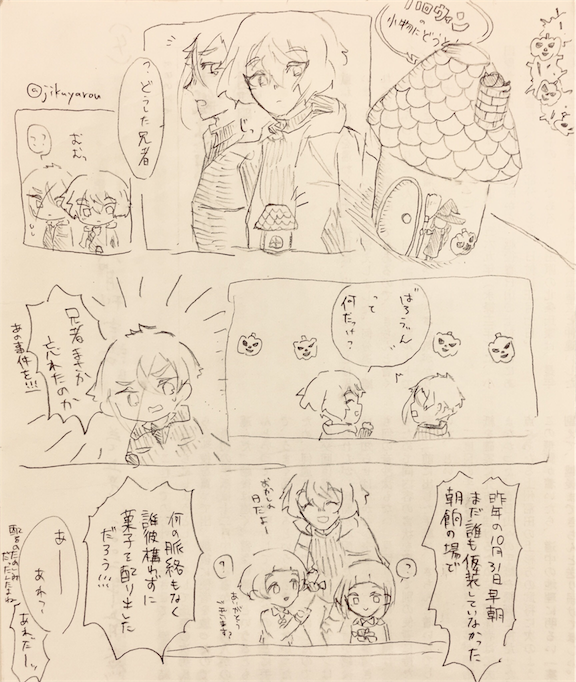 ハロウィン
の
小物にどうと
？どうした兄者
じっ
むむっ
@jikuyarou
はろうぃん
って
何だっけ？
兄者まさか
忘れたのか
あの事件を!!!
昨年の10月31日早朝
まだ誰も仮装していなかった
朝餉の場で
おかしの
日だよー
？
？
ありがとう
ございます？
何の脈絡もなく
誰彼構わずに
菓子を配り出した
だろう!!!
あー
あれっ
あれだーッ